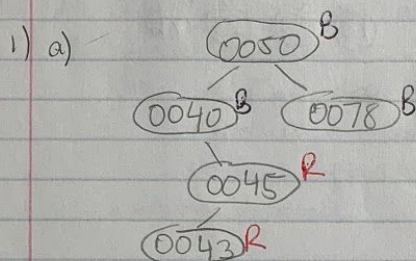 1) a) 0050 B
0040 B 0078 B
0045 R
0043 R